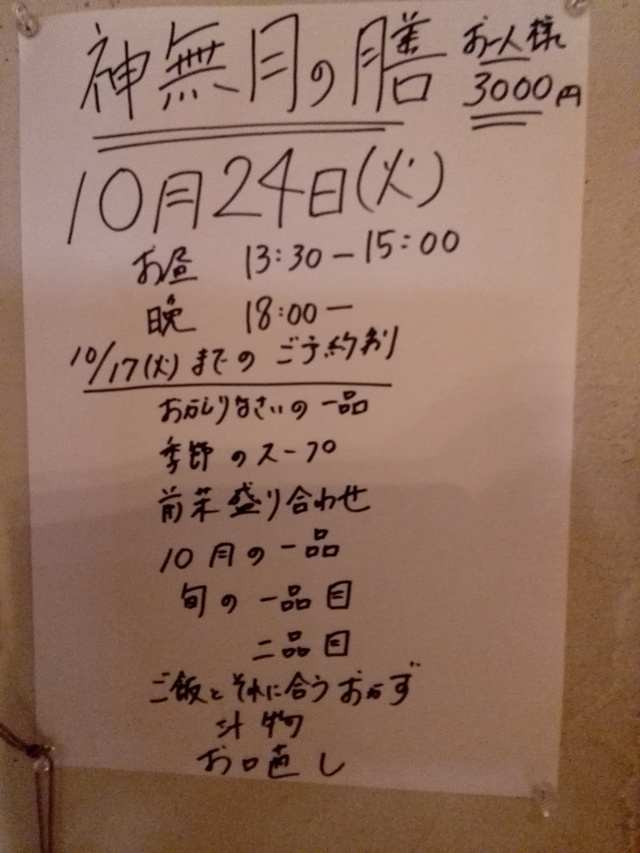 神無月の膳
お一人様
3000円
10月24日(火)
お昼 13:30-15:00
晩 18:00-
10/17(火)までのご予約制
おかえりなさいの一品
季節のスープ
前菜盛り合わせ
10月の一品
旬の一品目
二品目
ご飯とそれに合うおかず
汁物
お口直し